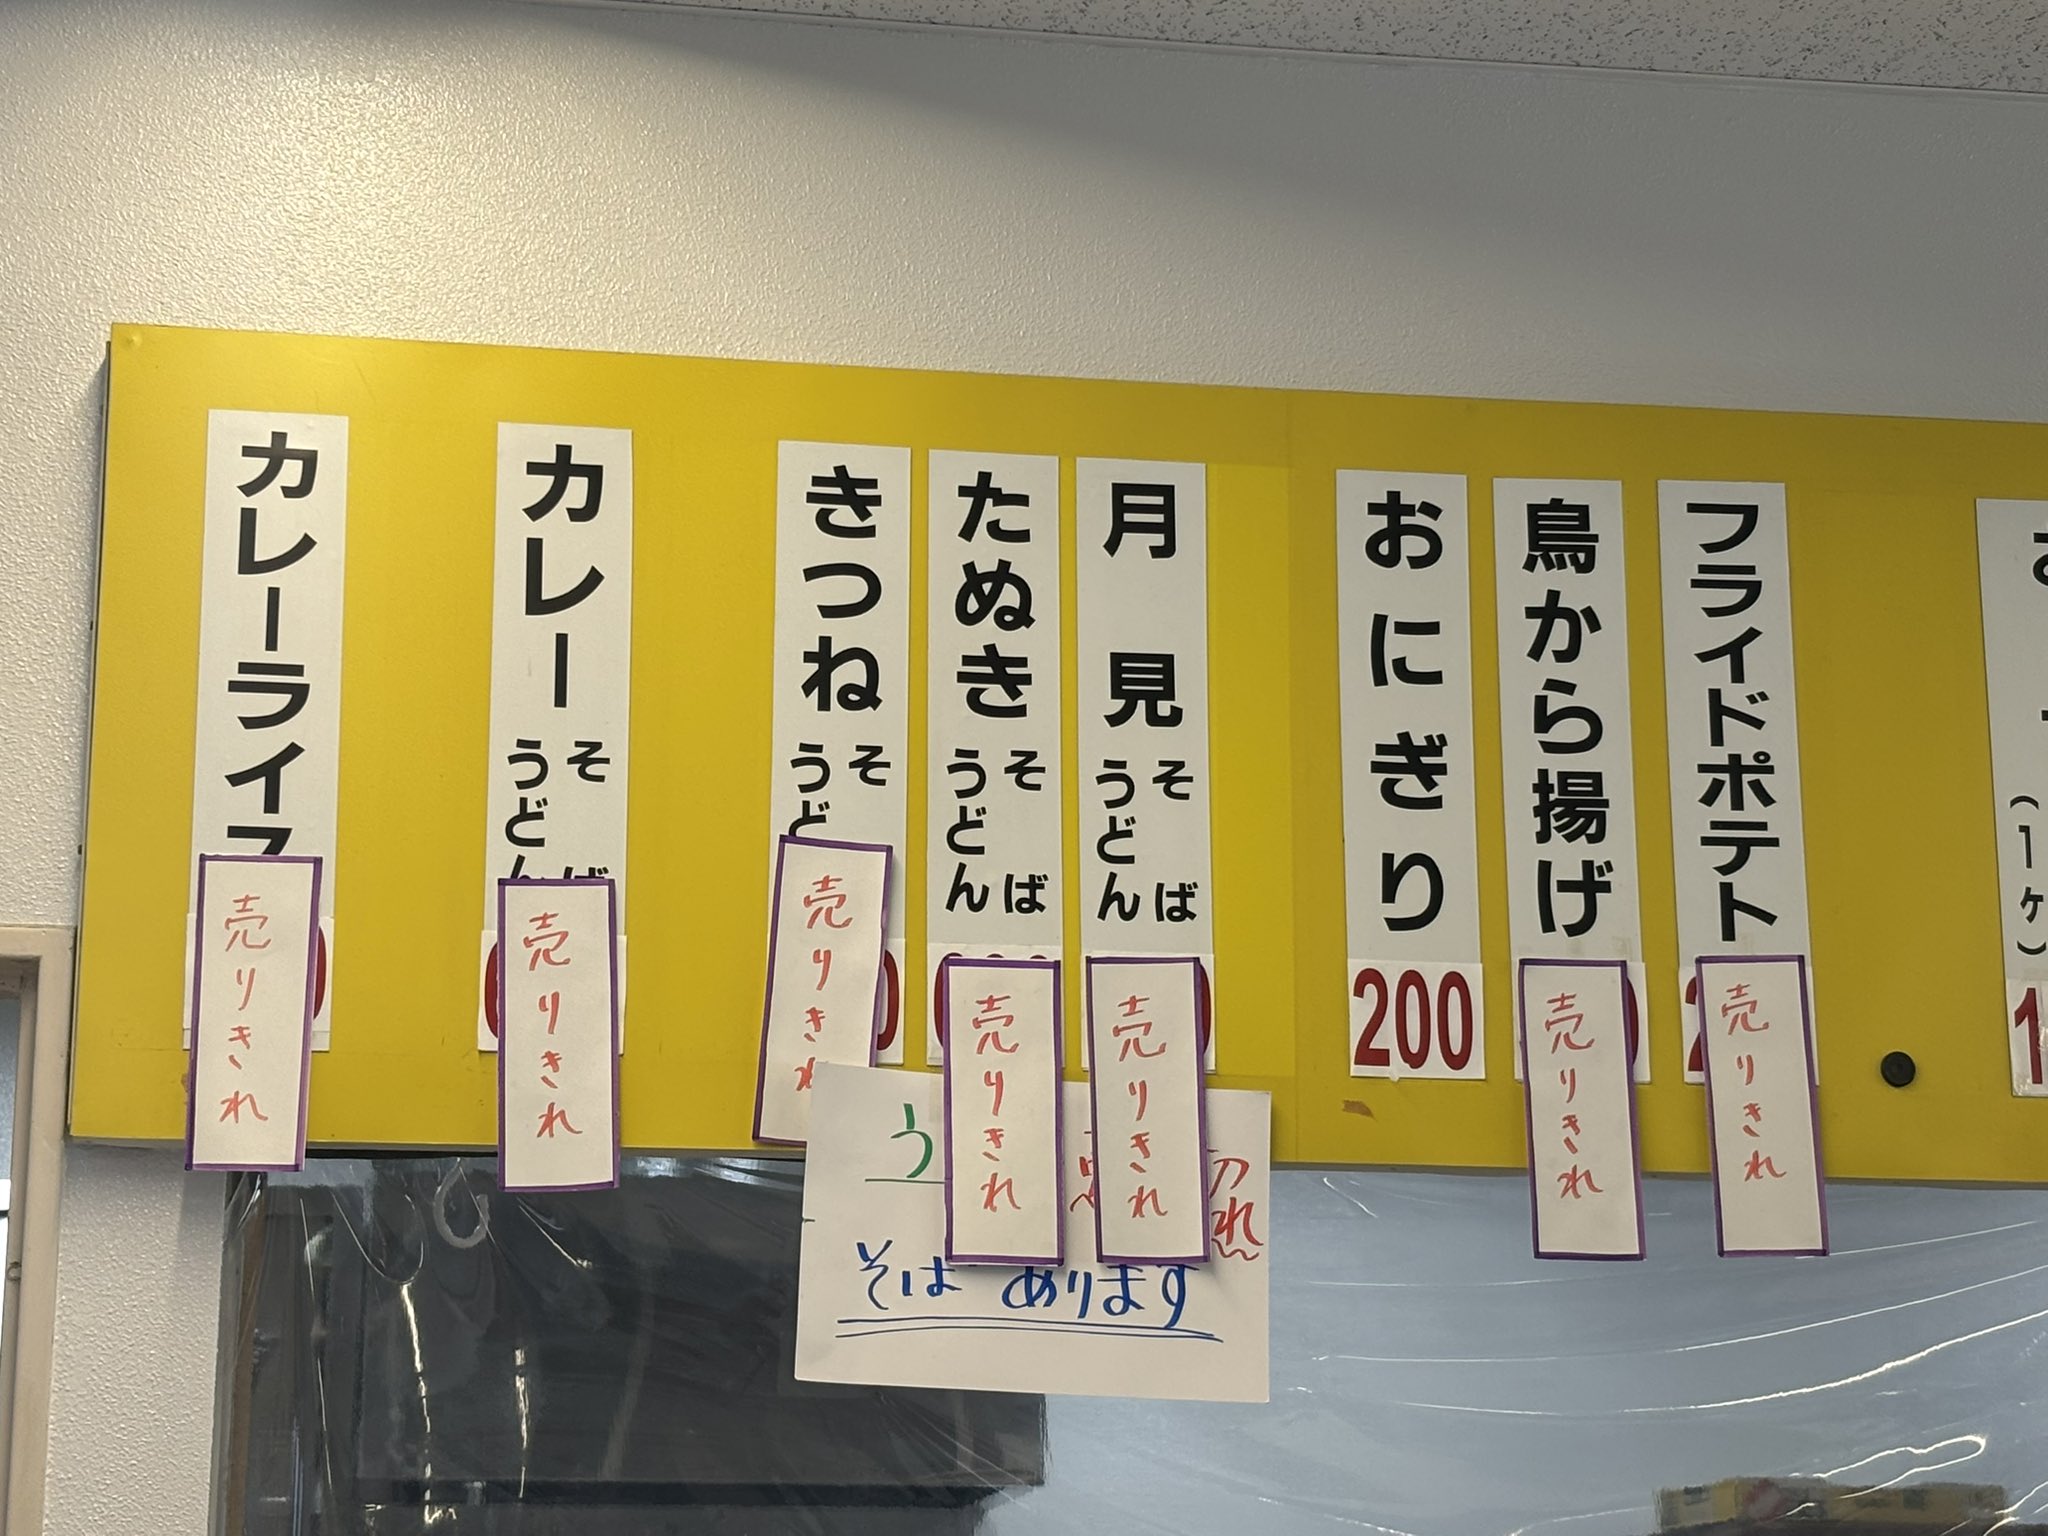 カレーライス
売りきれ
カレー
そば
うどん
売りきれ
きつね
そ
うど
売りきれ
たぬき
そば
うどん
売りきれ
月見
そば
うどん
売りきれ
おにぎり
200
鳥から揚げ
売りきれ
フライドポテト
売りきれ
(1ヶ)
う 切れ
そば あります